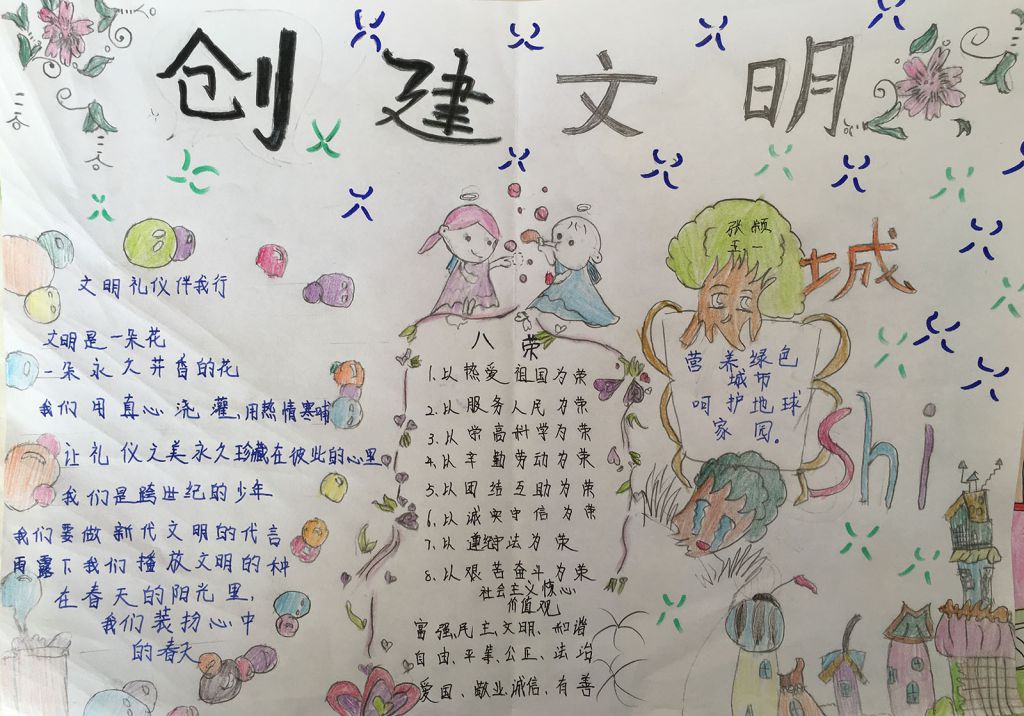 创建文明
城
shi
文明礼仪伴我行
文明是一朵花
一朵永久芳香的花
我们用真心浇灌,用热情寒哺
让礼仪之美永久珍藏在彼此的心里
我们是跨世纪的少年
我们要做新代文明的代言
雨露下我们播放文明的种
在春天的阳光里,
我们装扮心中
的春天
八荣
1.以热爱祖国为荣
2.以服务人民为荣
3.以崇高科学为荣
4.以辛勤劳动为荣
5.以团结互助为荣
6.以诚实守信为荣
7.以遵守法为荣
8.以艰苦奋斗为荣
社会主义惊心
价值观
富强,民主,文明、和谐
自由、平等、公正、法治
爱国、敬业,诚信、有善
营养绿色
城市
呵护地球
家园.